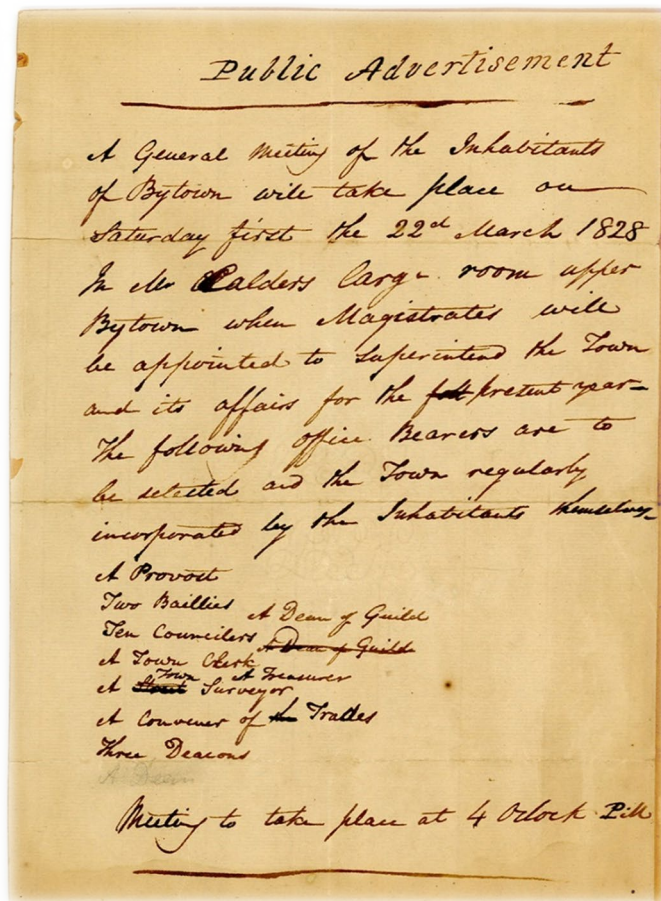 Public Advertisement
A General Meeting of the Inhabitants
of Bytown will take place on
Saturday first the 22d March 1828
In Mr Calders large room upper
Bytown when Magistrates will
be appointed to Superintend the Town
and its affairs for the foll present year
The following office Bearers are to
be selected and the Town regularly
incorporated by the Inhabitants themselves
A Provost
Two Baillies
A Dean of Guild
Ten Councilers A Dean of Guild
A Town Clerk
Town A Treasurer
A Street Surveyor
A Convener of the Trades
Three Deacons
A Dean
Meeting to take place at 4 Oclock P.M